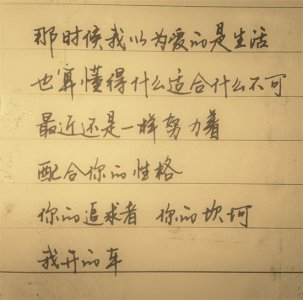 那时候我以为爱的是生活
也算懂得什么适合什么不可
最近还是一样努力着
配合你的性格
你的追求者 你的坎坷
我开的车